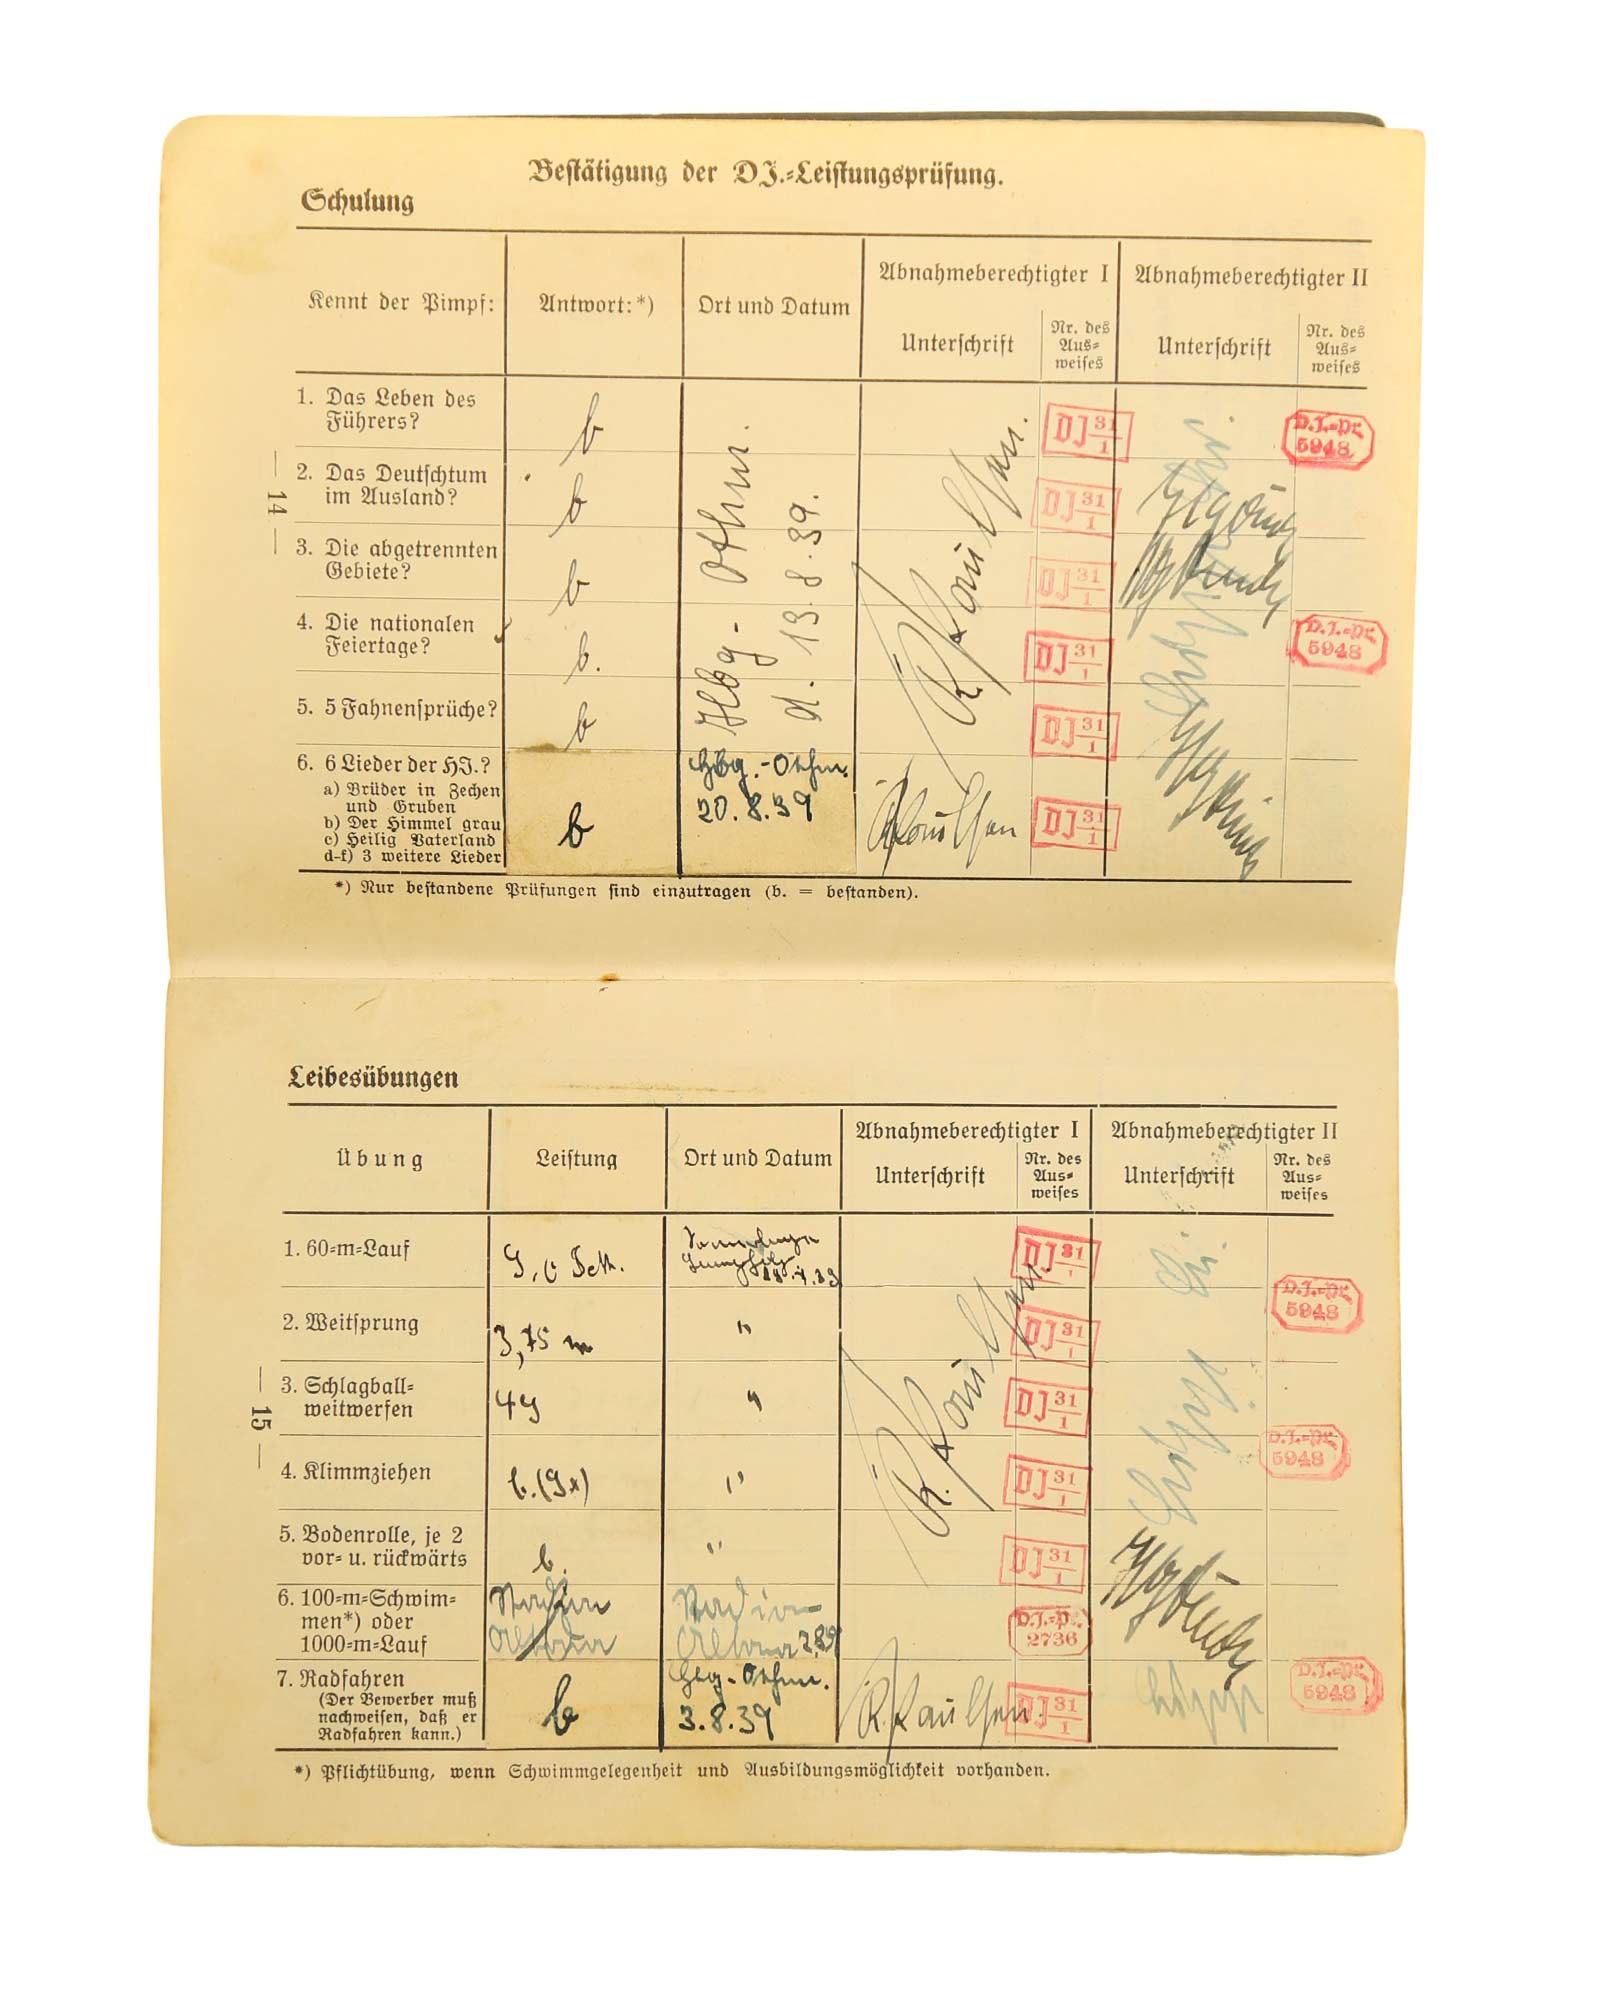 Bestätigung der DJ.-Leistungsprüfung.
Schulung
Kennt der Pimpf:
Antwort:*)
Ort und Datum
Abnahmeberechtigter I
Unterschrift
Nr. des
Aus-
weises
Abnahmeberechtigter II
Unterschrift
Nr. des
Aus-
weises
1. Das Leben des
Führers?
b
DJ 31/1
D.J.-Pr.
5948
2. Das Deutschtum
im Ausland?
b
DJ 31/1
3. Die abgetrennten
Gebiete?
b
DJ 31/1
4. Die nationalen
Feiertage?
b.
DJ 31/1
D.J.-Pr.
5948
5. 5 Fahnensprüche?
b
Hbg- Othm.
d. 13.8.39.
R. Paulsen.
DJ 31/1
6. 6 Lieder der HJ.?
a) Brüder in Zechen
und Gruben
b) Der Himmel grau
c) Heilig Vaterland
d-f) 3 weitere Lieder
b
Hbg.-Othm.
20.8.39
R. Paulsen
DJ 31/1
*) Nur bestandene Prüfungen sind einzutragen (b. = bestanden).
— 14 —
Leibesübungen
Übung
Leistung
Ort und Datum
Abnahmeberechtigter I
Unterschrift
Nr. des
Aus-
weises
Abnahmeberechtigter II
Unterschrift
Nr. des
Aus-
weises
1. 60-m-Lauf
DJ 31/1
2. Weitsprung
3,75 m
"
DJ 31/1
D.J.-Pr.
5948
3. Schlagball-
weitwerfen
49
"
DJ 31/1
4. Klimmziehen
b. (9x)
"
R. Paulsen.
DJ 31/1
D.J.-Pr.
5948
5. Bodenrolle, je 2
vor- u. rückwärts
b.
"
DJ 31/1
6. 100-m-Schwim-
men*) oder
1000-m-Lauf
Stadion
Altona
Stadion
Altona
D.J.-Pr.
2736
7. Radfahren
(Der Bewerber muß
nachweisen, daß er
Radfahren kann.)
b
Hbg.-Othm.
3.8.39
R. Paulsen.
DJ 31/1
D.J.-Pr.
5948
*) Pflichtübung, wenn Schwimmgelegenheit und Ausbildungsmöglichkeit vorhanden.
— 15 —